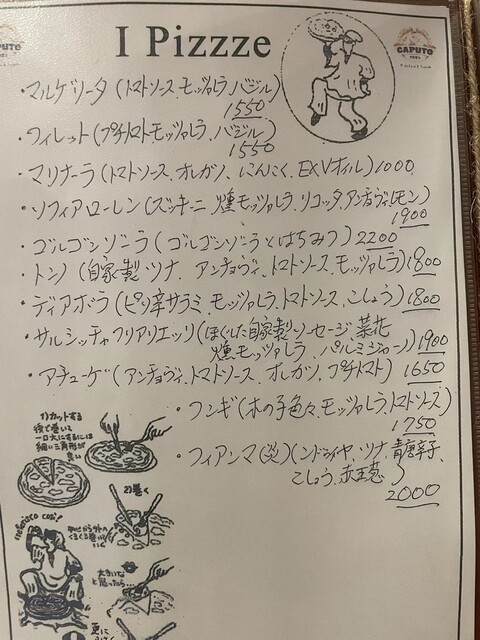 CAPUTO
I Pizzze
CAPUTO
・マルゲリータ(トマトソース、モッツァレラ、バジル)
1550
・フィレット(プチトマト、モッツァレラ、バジル)
1550
・マリナーラ(トマトソース、オレガノ、にんにく、EXVオイル)1000
・ソフィアローレン(ズッキーニ、燻モッツァレラ、リコッタ、アンチョヴィ、レモン)
1900
・ゴルゴンゾーラ(ゴルゴンゾーラとはちみつ)2200
・トンノ(自家製ツナ、アンチョヴィ、トマトソース、モッツァレラ)1800
・ディアボラ(ピリ辛サラミ、モッツァレラ、トマトソース、こしょう)1800
・サルシッチャフリアリエッリ(ほぐした自家製ソーセージ、菜花
燻モッツァレラ、パルミジャーノ)1900
・アチューゲ(アンチョヴィ、トマトソース、オレガノ、プチトマト)1650
・フンギ(木の子色々、モッツァレラ、トマトソース)
1750
・フィアンマ(炎)(ンドゥイヤ、ツナ、青唐辛子、
こしょう、赤玉葱)
2000
1)カットする
後で巻いて
一口大にするには
細い三角形が
良い
2)巻く
中心から外へ
くるくる巻いて
いく
大きいな
と思ったら…
更に